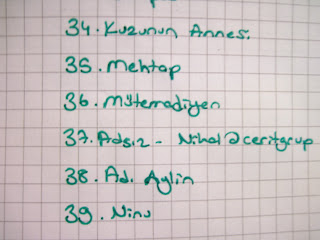 34. Kuzunun Annesi.
35. Mehtap
36. Mütemadiyen
37. Adsız - Nihal@ceritgrup
38. Ad. Aylin
39. Ninu